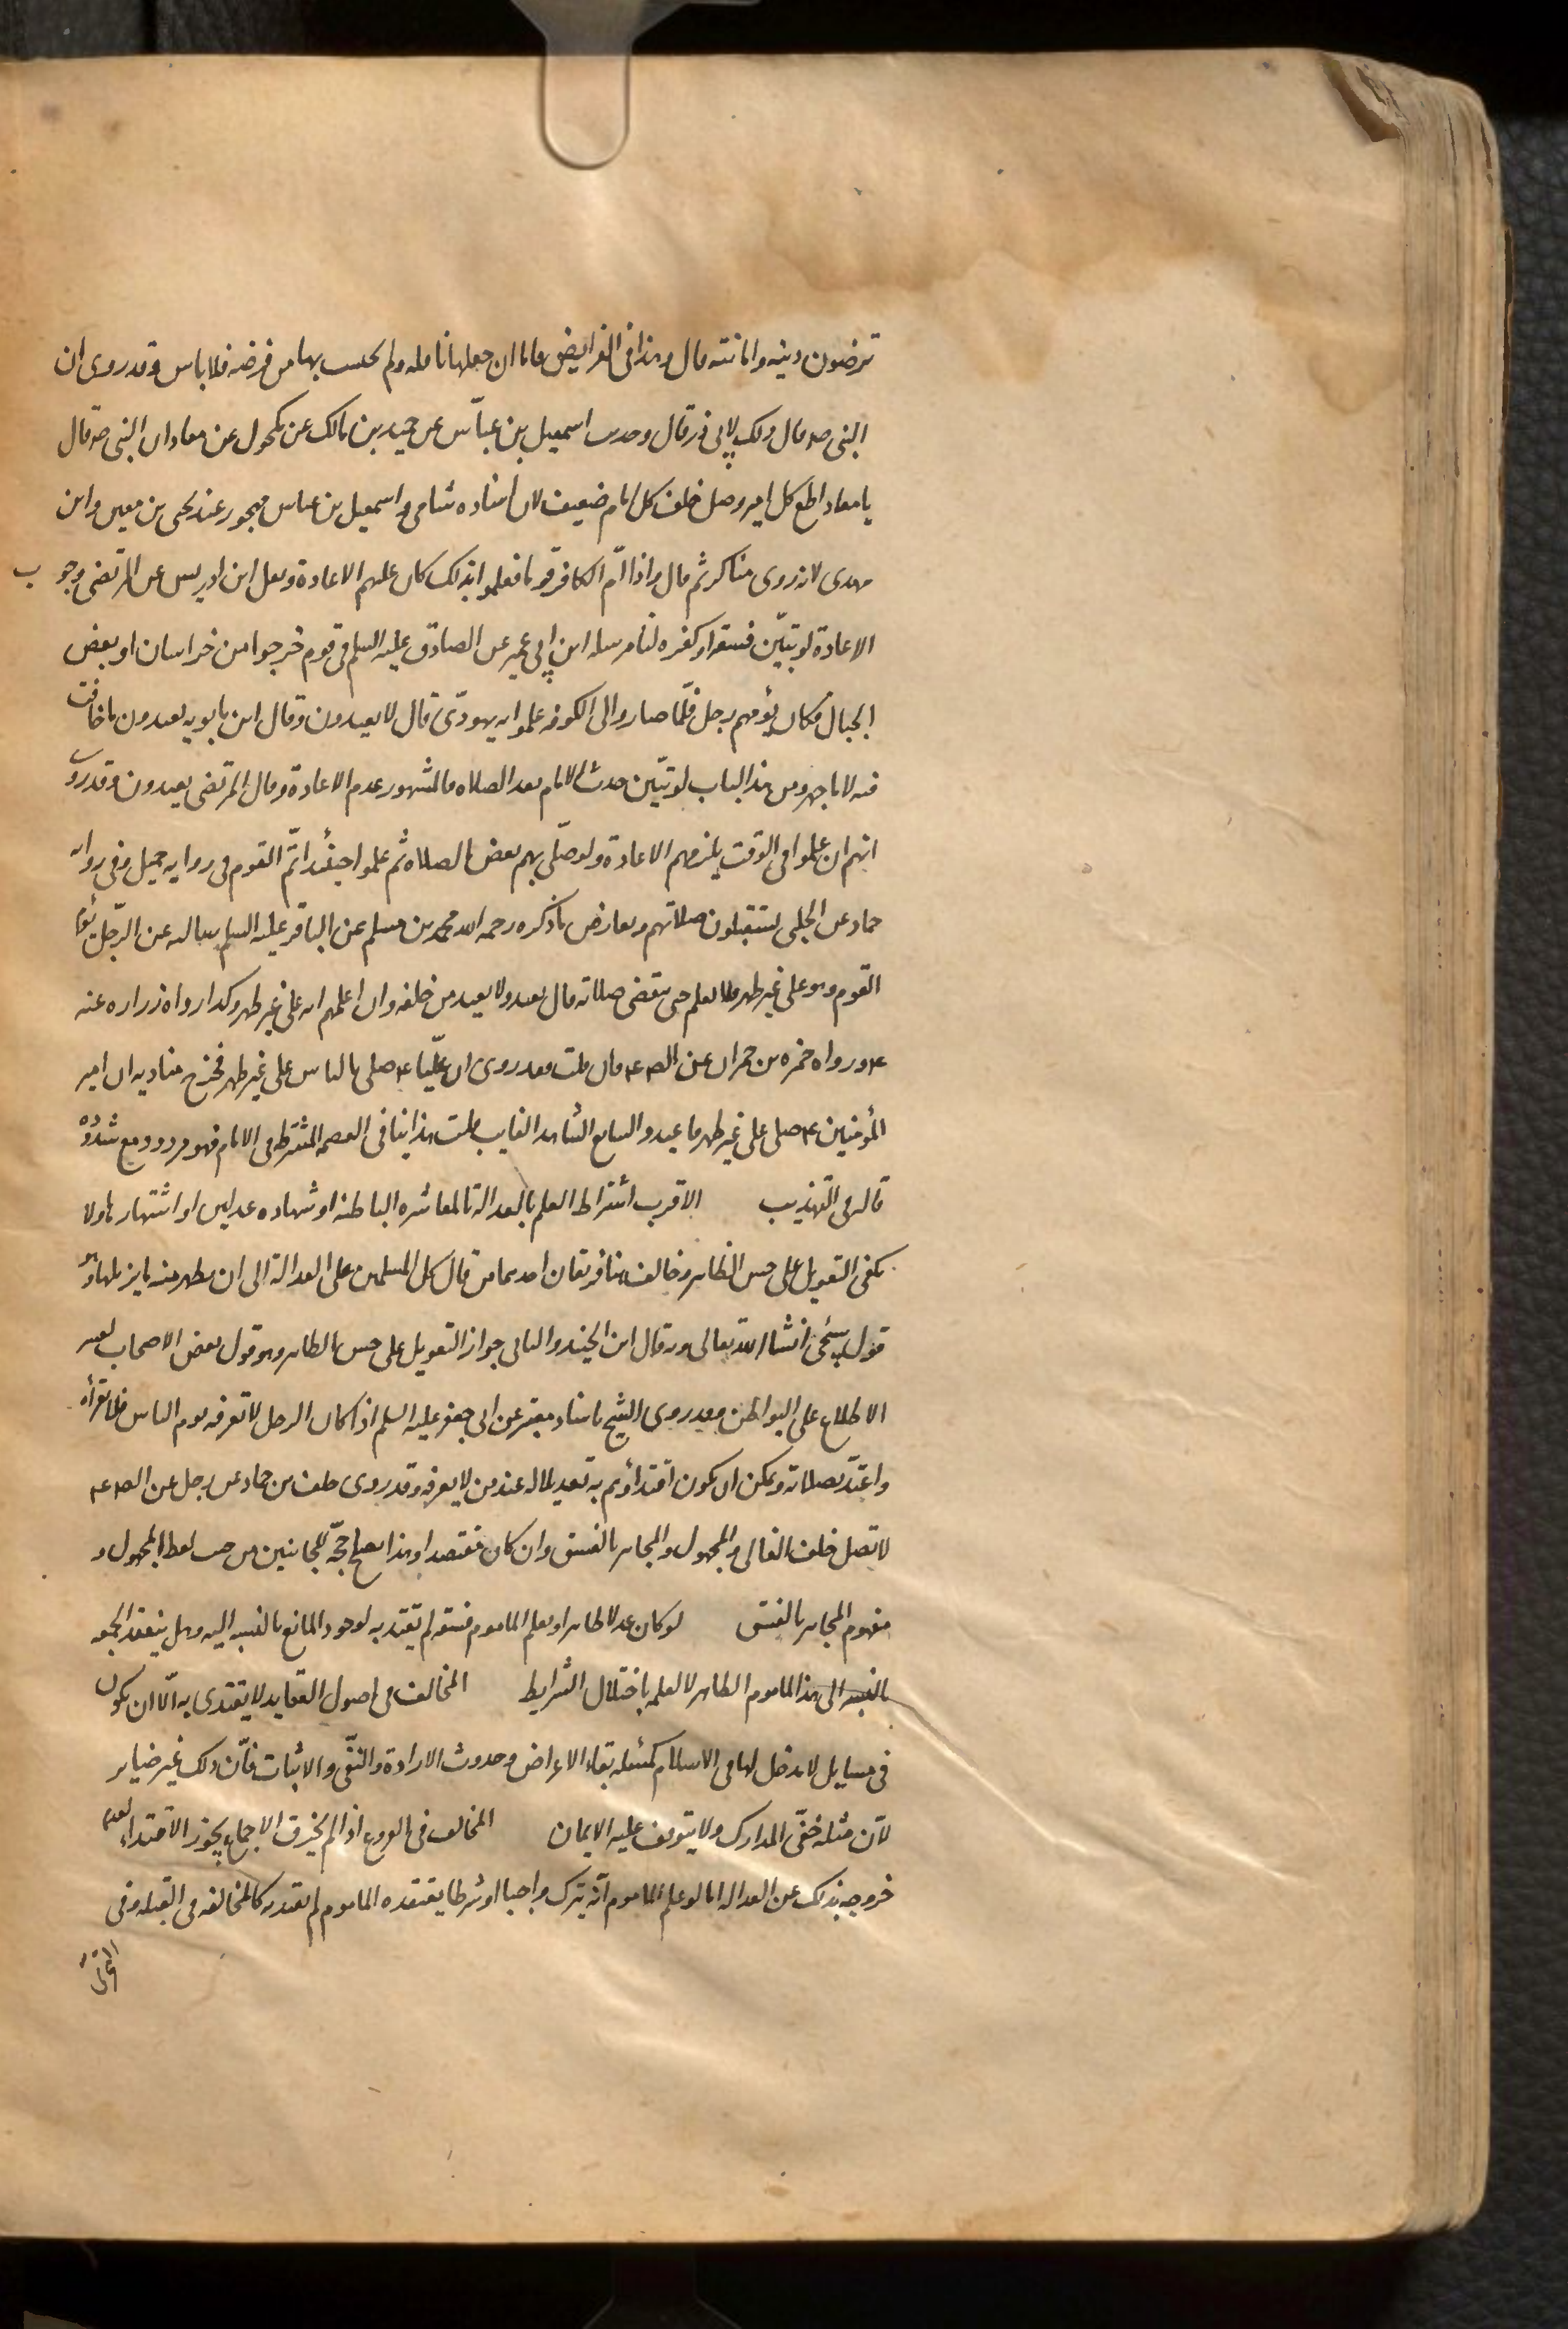 ترضون دينه وامانته قال وهذا في الفرايض فاما ان جعلها نافله ولم يحتسب بها من فرضه فلا باس وقد روى ان
النبى صه قال ذلك لابى ذر قال وحديث اسمعيل بن عياش عن حميد بن مالك عن مكحول عن معاذ ان النبى صه قال
يا معاذ اطع كل امير وصل خلف كل امام ضعيف لان اسناده شامى واسمعيل بن عياش مهجور عند يحيى بن معين وابن
مهدى لانه روى مناكر ثم قال واذا ام الكافر قوما فعلموا بذلك كان عليهم الاعادة ونقل ابن ادريس عن المرتضى وجوب
الاعادة لو تبيّن فسقه او كفره لنا مرسله ابن ابى عمير عن الصادق عليه السلم فى قوم خرجوا من خراسان او بعض
الجبال فكان يؤمهم رجل فلمّا صاروا الى الكوفه علموا انه يهودىّ قال لا يعيدون وقال ابن بابويه يعيدون ما خافت
فيه لا ما جهر ومن هذا الباب لو تبيّن حدث الامام بعد الصلاه فالمشهور عدم الاعادة وقال المرتضى يعيدون وقد روى
انهم ان علموا فى الوقت يلزمهم الاعادة ولو صلّى بهم بعض الصلاه ثم علموا حينئذ اتمّ القوم فى روايه جميل وفى روايه
حماد عن الحلبى يستقبلون صلاتهم ويعارض ما ذكره رحمه الله محمد بن مسلم عن الباقر عليه السلم سالته عن الرّجل يؤم
القوم وهو على غير طهر فلا يعلم حتى ينقضى صلاته قال يعيد ولا يعيد من خلفه وان اعلمهم انه على غير طهر وكذا رواه زراره عنه
ع ورواه حمزه بن حمران عن الص ع فان قلت فقد روى ان عليّا ع صلى بالناس على غير طهر فخرج مناديه ان امير
المؤمنين ع صلى على غير طهر فاعيدوا ليبلغ الشاهد الغايب قلت هذا ينافى العصمه المشترطه فى الامام فهو مردود مع شذوذه
قاله فى التهذيب الاقرب اشتراط العلم بالعدالة بالمعاشره الباطنه او شهاده عدلين او اشتهارها ولا
يكفى التعويل على حسن الظاهر وخالف هنا فريقان احدهما من قال كل المسلمين على العدالة الى ان يظهر منه ما يزيلها وهو
قول سيجئ انشاء الله تعالى وبه قال ابن الجنيد والثانى جواز التعويل على حسن الظاهر وهو قول بعض الاصحاب لعسر
الاطلاع على البواطن وقد روى الشيخ باسناد معتبر عن ابى جعفر عليه السلم اذا كان الرجل لا تعرفه يوم الناس فلا تقرأ
واعتدّ بصلاته ويمكن ان يكون اقتداؤهم به تعديلا له عند من لا يعرفه وقد روى خلف بن حماد عن رجل عن الص ع
لا تصل خلف الغالى والمجهول والمجاهر بالفسق وان كان مقتصدا وهذا يصلح حجّة للجانبين من حيث لفظ المجهول و
مفهوم المجاهر بالفسق لو كان عدلا ظاهرا ويعلم الماموم فسقه لم يقتد به لوجود المانع بالنسبه اليه وهل ينعقد الجمعه
بالنسبه الى هذا الماموم الظاهر لا لعلمه باختلال الشرايط المخالف فى اصول العقايد لا يقتدى به الّا ان يكون
فى مسايل لا مدخل لها فى الاسلام كمسئله بقاء الاعراض وحدوث الارادة والنفى والاثبات فانّ ذلك غير ضاير
لانّ مثله خفىّ المدارك ولا يتوقف عليه الايمان المخالف فى الفروع اذا لم يخرق الاجماع يجوز الاقتداء لعدم
خروجه بذلك عن العداله اما لو علم الماموم انّه يترك واجبا او شرطا يعتقده الماموم لم يقتد به كالمخالفه فى القبله وفى